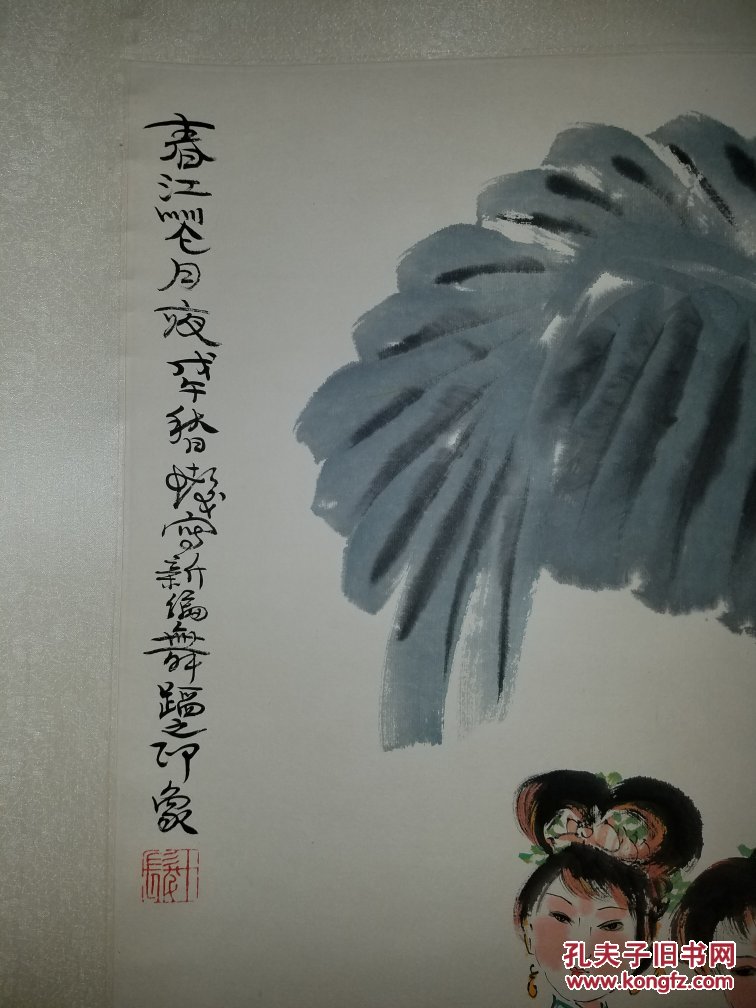 春江花月夜戊午
寫新編舞蹈之印象
孔夫子旧书网
www.kongfz.com